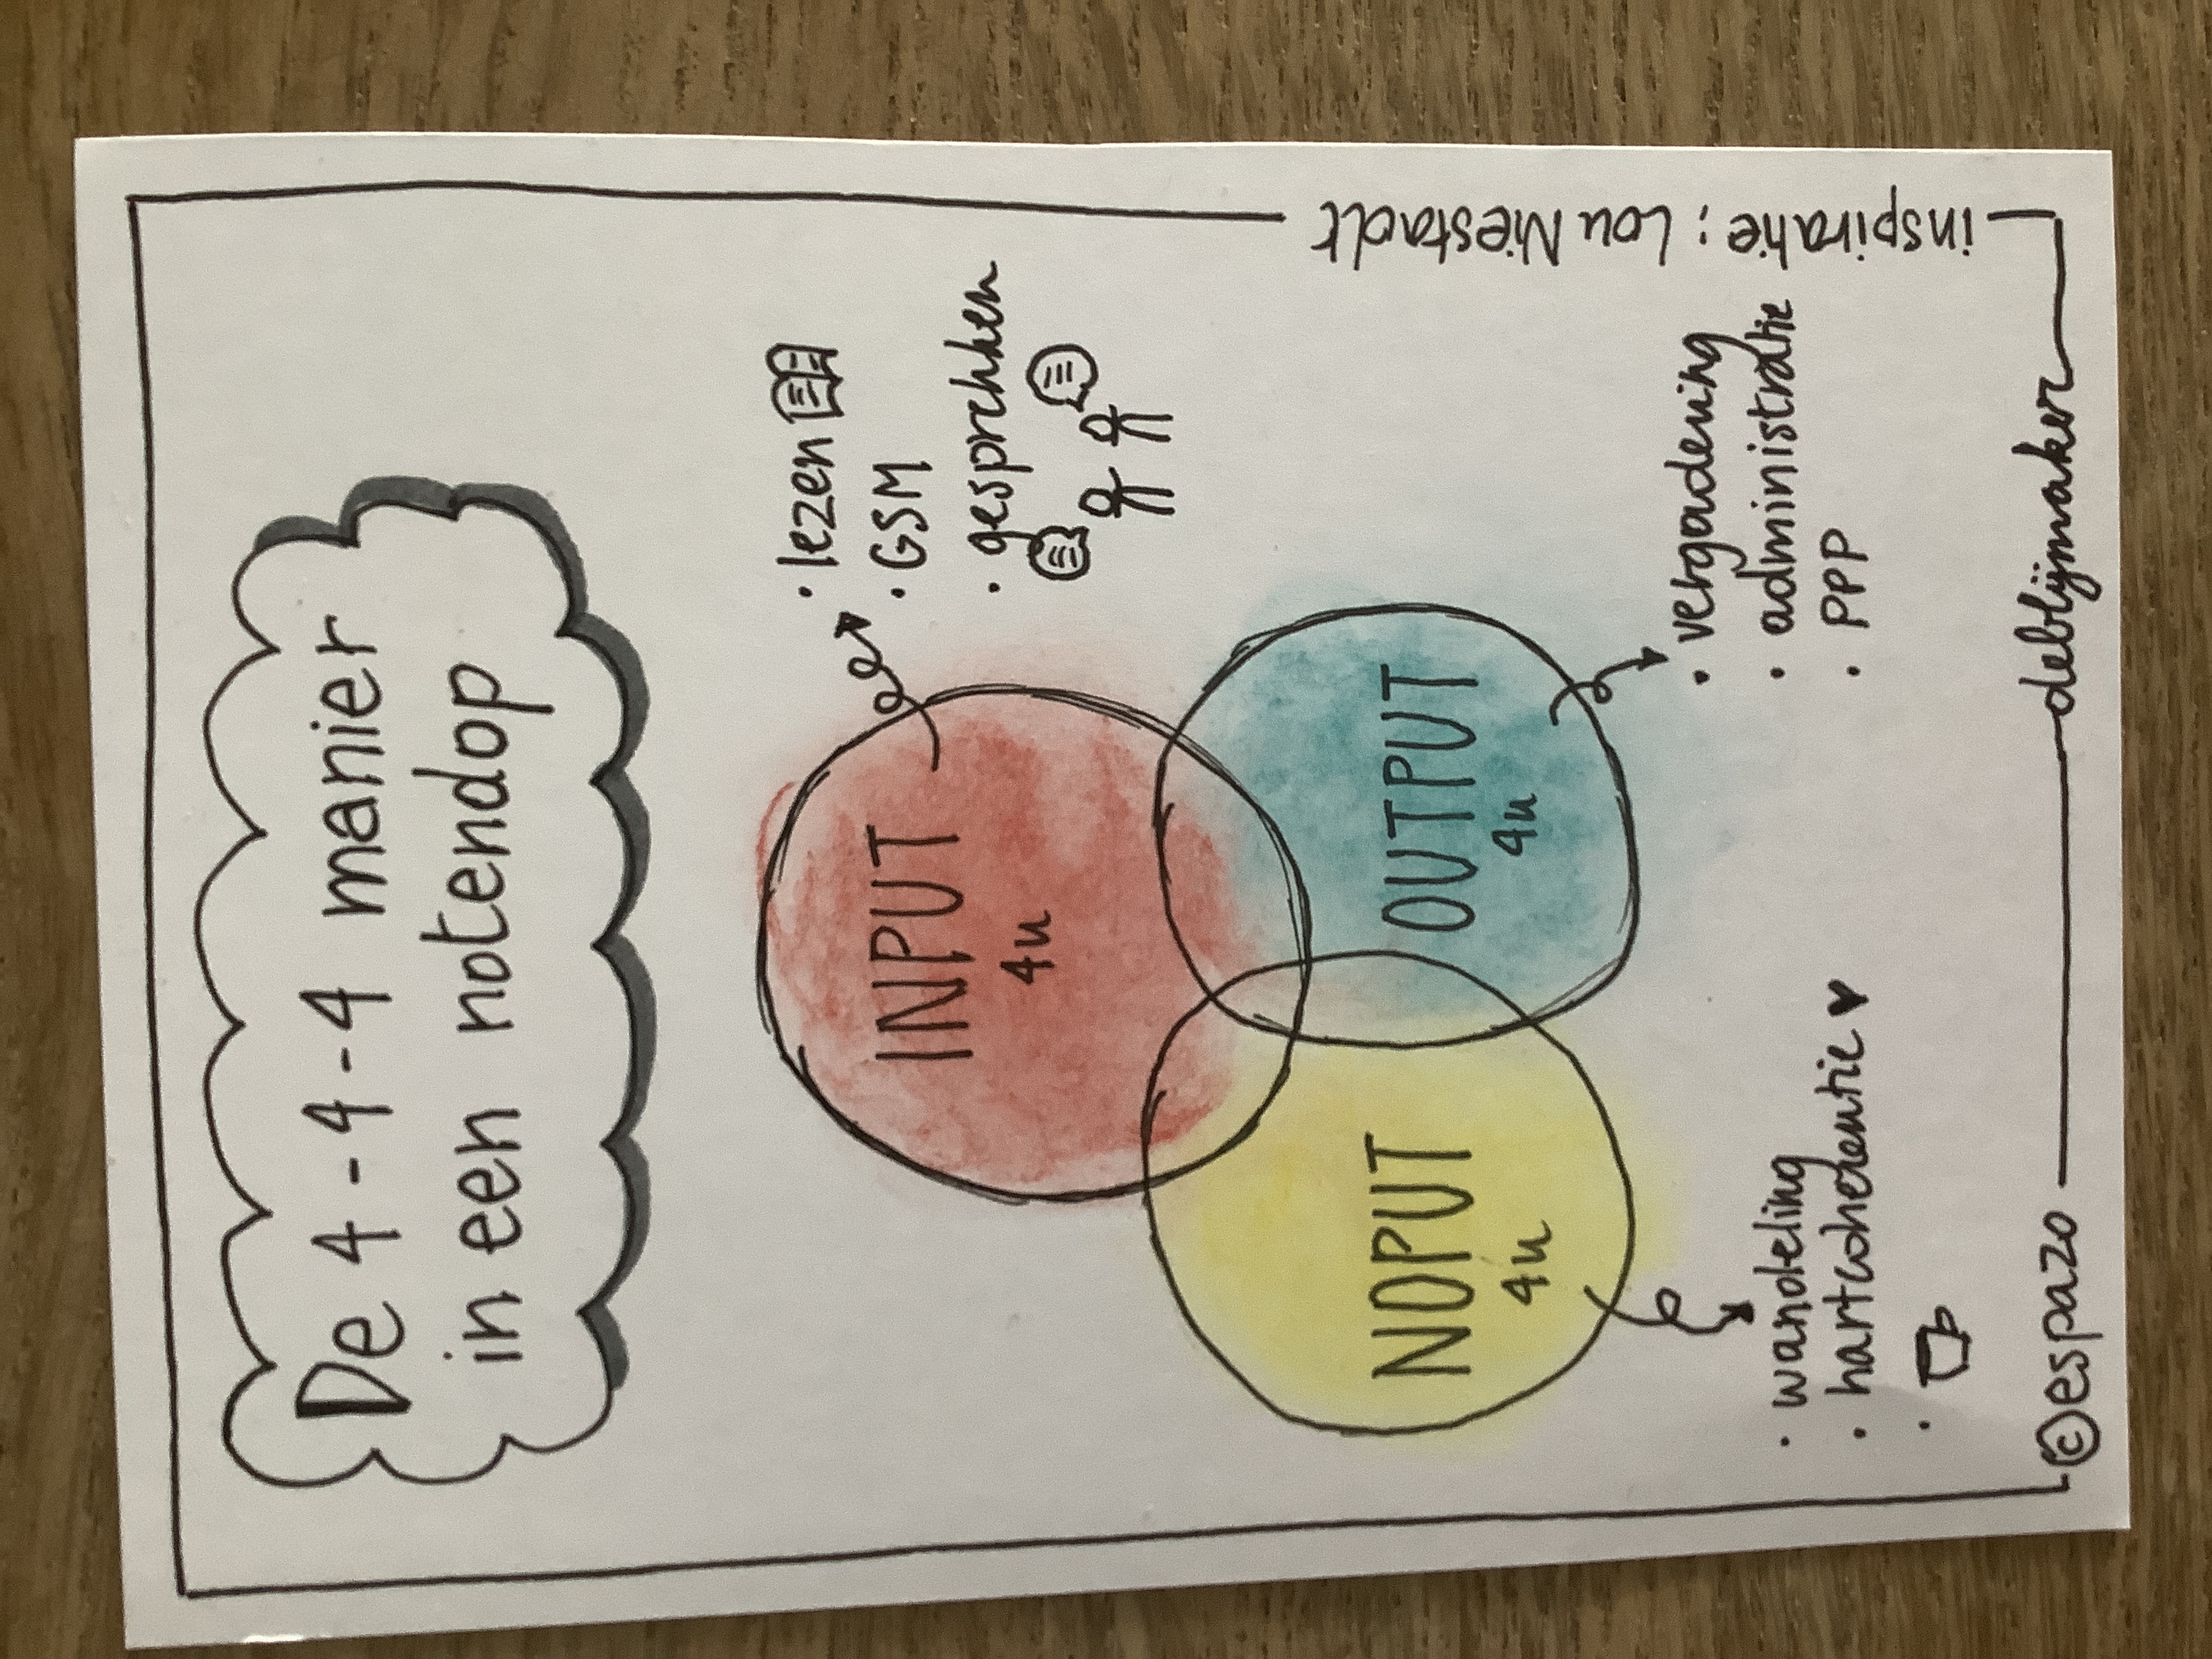 De 4-4-4 manier
in een notendop
INPUT
4u
• lezen
• GSM
• gesprekken
NOPUT
4u
OUTPUT
4u
• wandeling
• hartcoherentie ♥
•
• vergadering
• administratie
• PPP
©espazo
deblijmaker
inspiratie: Lou Niestadt